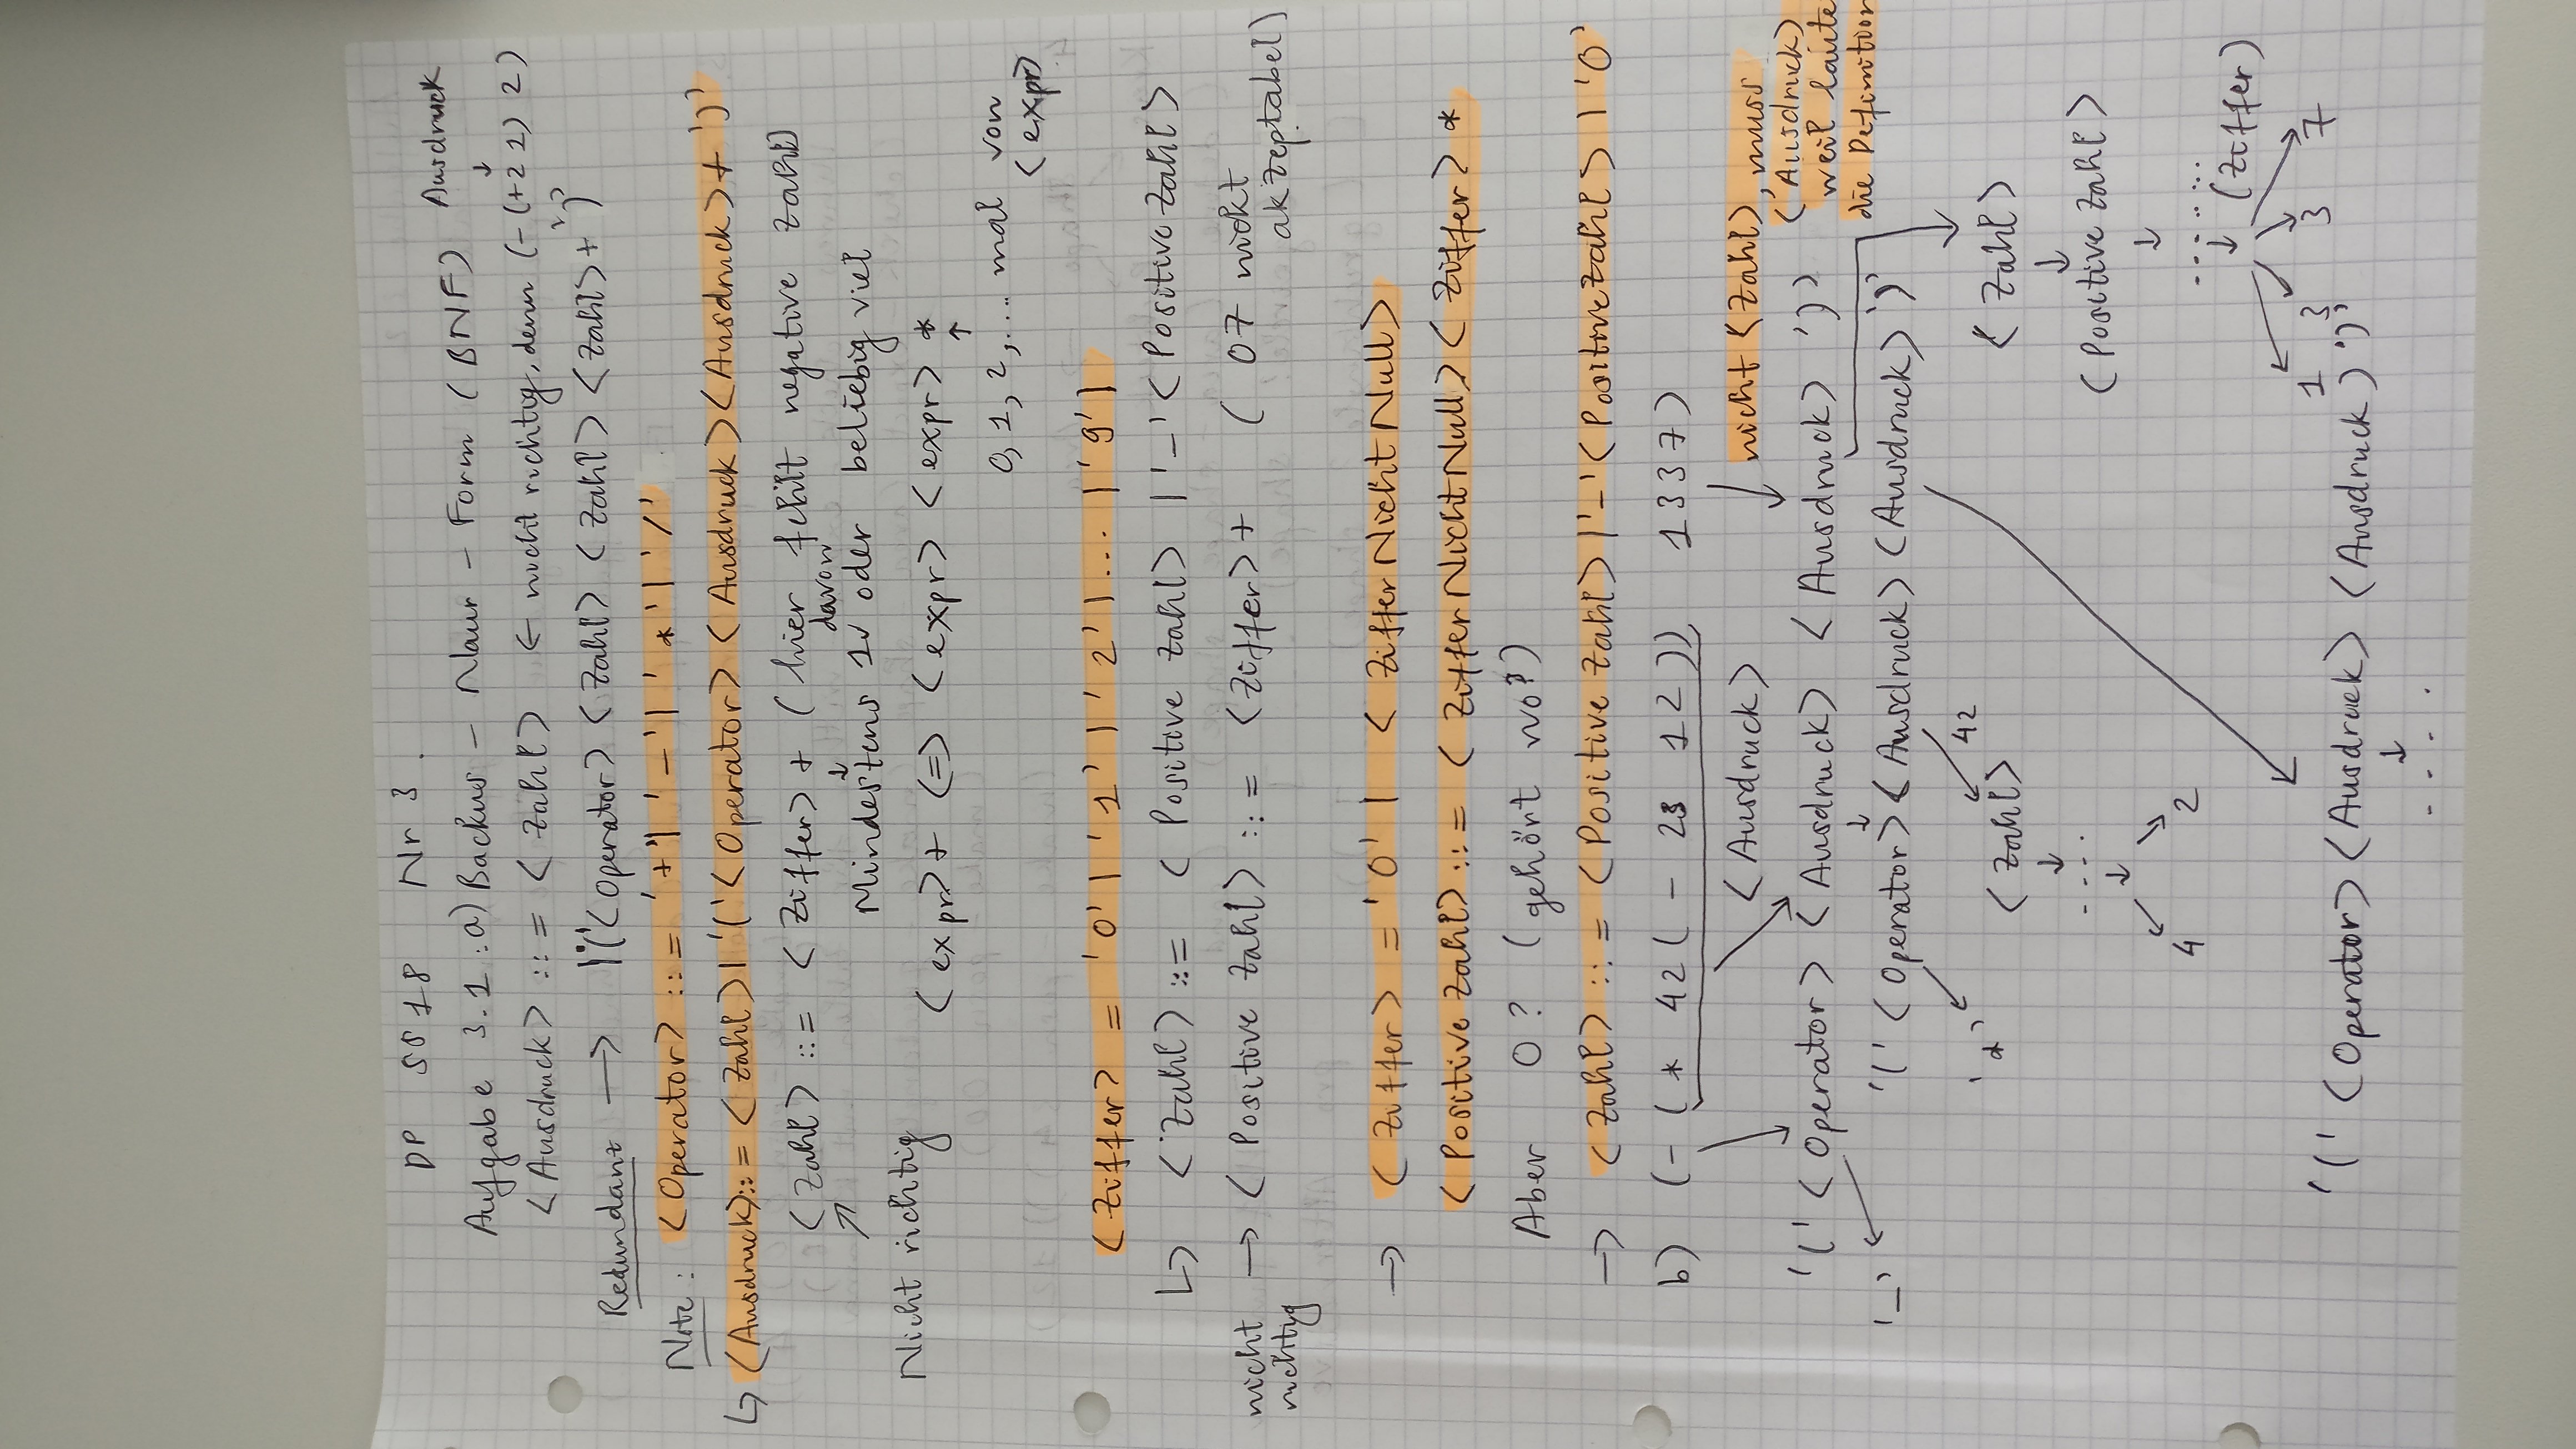 DP SS18 Nr 3.
Aufgabe 3.1: a) Backus - Naur - Form (BNF) Ausdruck
↓
<Ausdruck> ::= <Zahl> ← nicht richtig, denn (- (+2 1) 2)
Redundanz → |'('<Operator> <Zahl> <Zahl> <Zahl>+ ')'
Note: <Operator> ::= '+'| '-'| '*'| '/'
↳ <Ausdruck>::= <Zahl>| '('<Operator> <Ausdruck><Ausdruck>+ ')'
<Zahl> ::= <Ziffer>+ (hier fehlt negative Zahl)
↗ ↓ davon
Mindestens 1 oder beliebig viel
Nicht richtig
<expr>+ <=> <expr> <expr>*
↑
0, 1, 2, ... mal von
<expr>
<Ziffer> = '0' | '1' | '2' | ... | '9' |
↳ <Zahl> ::= <Positive Zahl> | '-' <Positive Zahl>
nicht richtig → <Positive Zahl> ::= <Ziffer>+ (07 nicht
akzeptabel)
→ <Ziffer> = '0' | <ZifferNichtNull>
<Positive Zahl> ::= <ZifferNichtNull><Ziffer>*
Aber 0? (gehört wo?)
→ <Zahl> ::= <Positive Zahl> |'-'<PositiveZahl> | '0'
b) (- (* 42 (- 23 12)) 1337)
<Ausdruck> nicht <Zahl>, muss
<Ausdruck>
weil laute
die Definition
'(' <Operator> <Ausdruck> <Ausdruck> ')'
'-' '(' <Operator> <Ausdruck> <Ausdruck> ')'
'*' 42
<Zahl> <Zahl>
↓ ↓
.... <Positive Zahl>
↓ ↓
4 2 ......
↓ <Ziffer>
1 3 3 7
'(' <Operator> <Ausdruck> <Ausdruck> ')'
↓
....